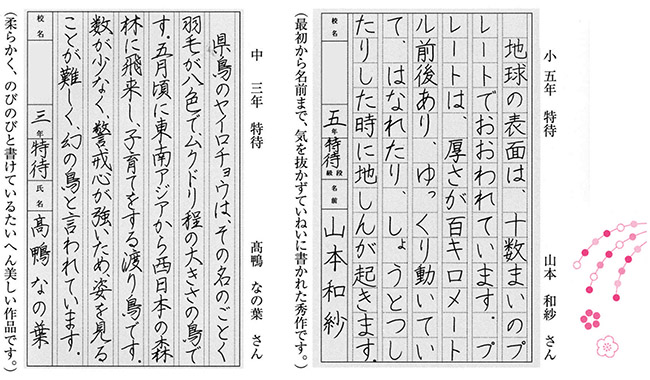 小 五年 特待 山本 和紗 さん
地球の表面は、十数まいのプ
レートでおおわれています。プ
レートは、厚さが百キロメート
ル前後あり、ゆっくり動いてい
て、はなれたり、しょうとつし
たりした時に地しんが起きます。
校名 五年 特待 級段 名前 山本和紗
(最初から名前まで、気を抜かずていねいに書かれた秀作です。)
中 三年 特待 高鴨 なの葉 さん
県鳥のヤイロチョウは、その名のごとく
羽毛が八色で、ムクドリ程の大きさの鳥で
す。五月頃に東南アジアから西日本の森
林に飛来し、子育てをする渡り鳥です。
数が少なく、警戒心が強いため、姿を見る
ことが難しく、幻の鳥と言われています。
校名 三年 特待 氏名 高鴨なの葉
(柔らかく、のびのびと書けているたいへん美しい作品です。)